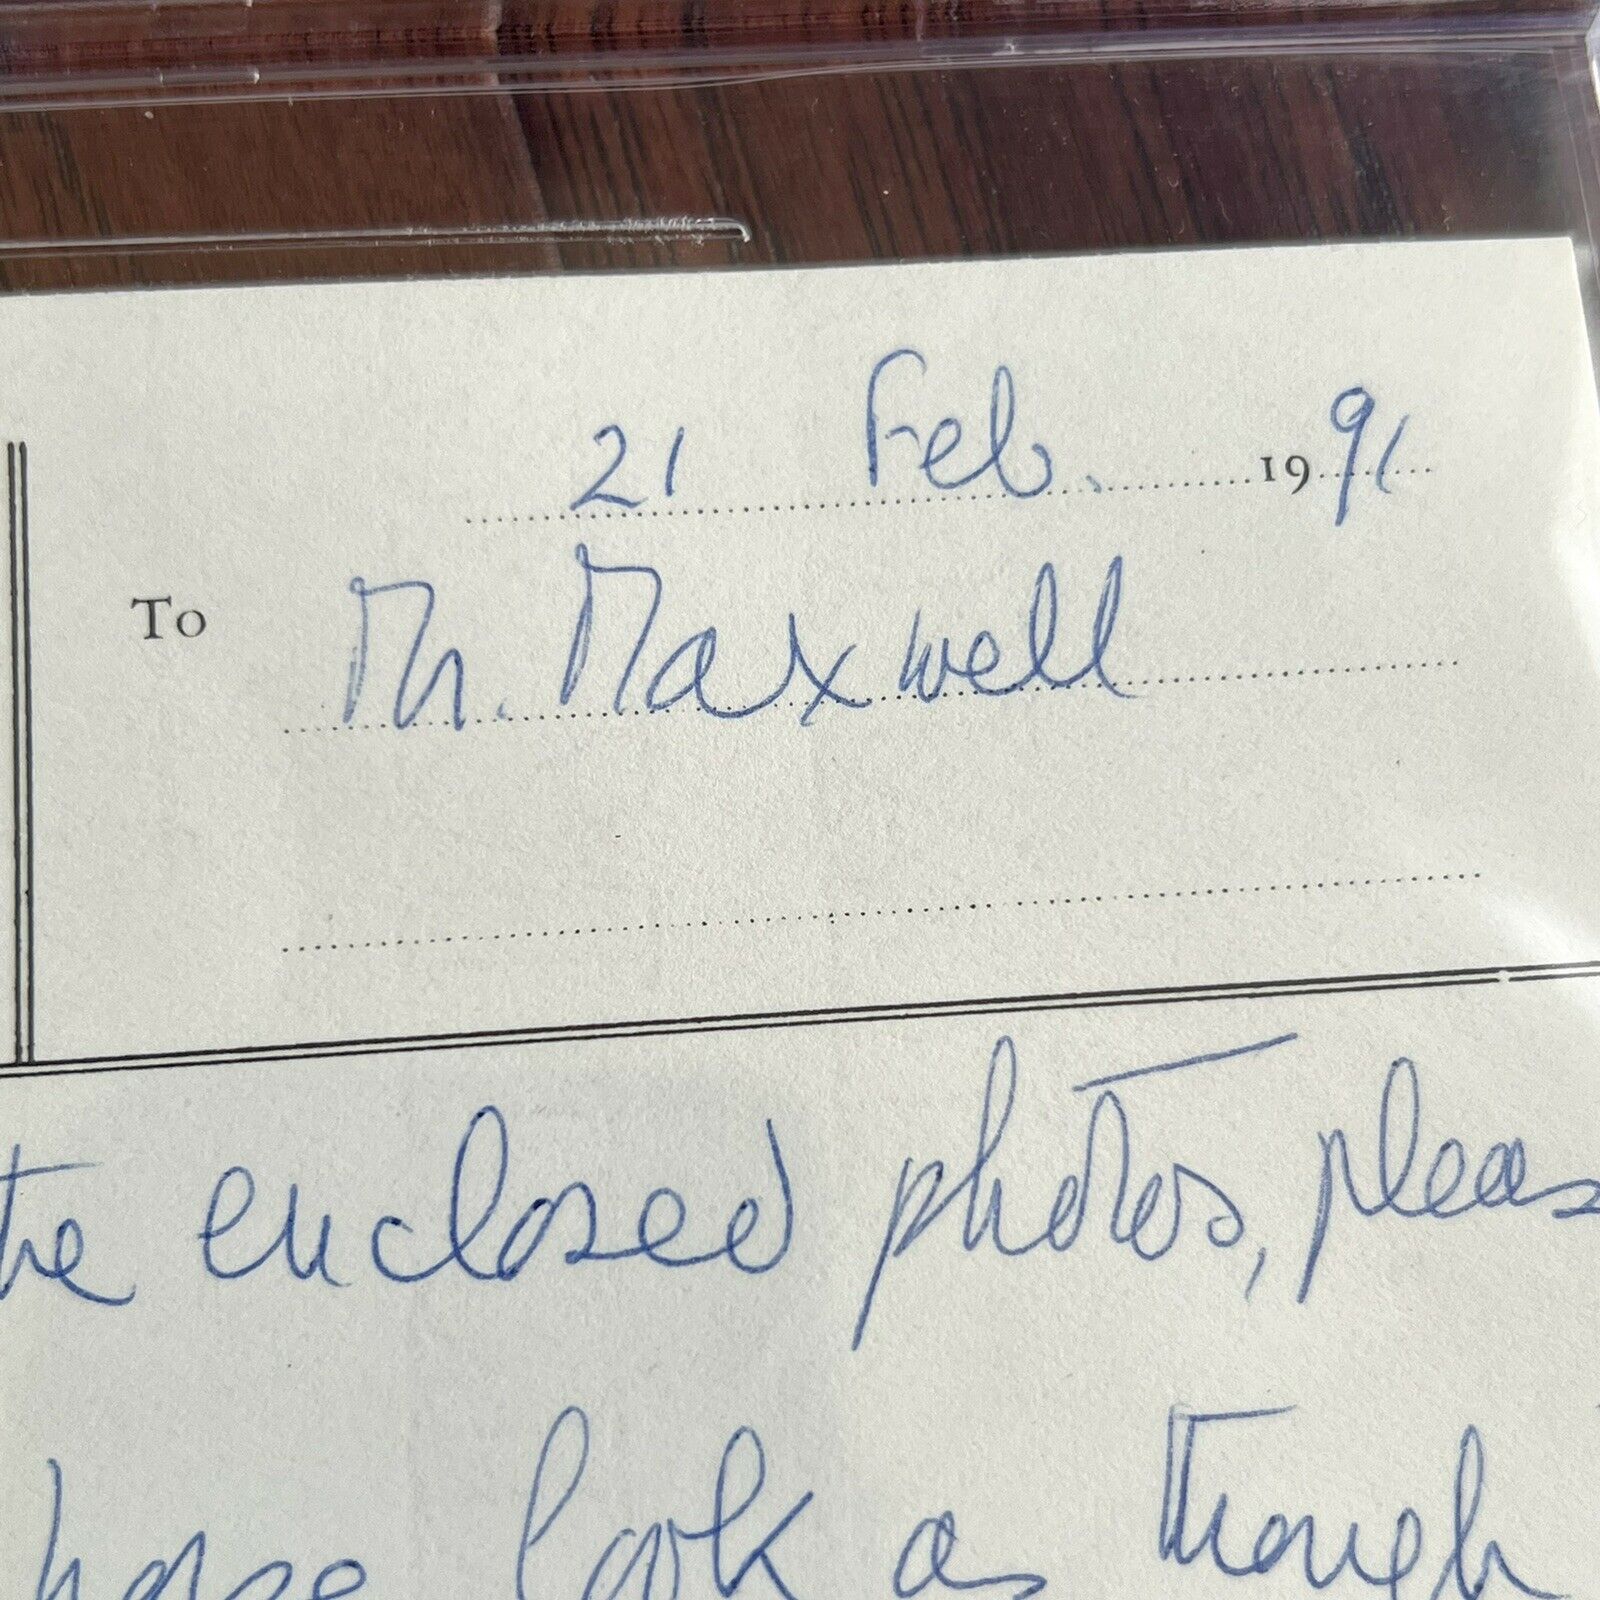 21 Feb. 1991
To Mr. Maxwell
the enclosed photos, pleas
look as though